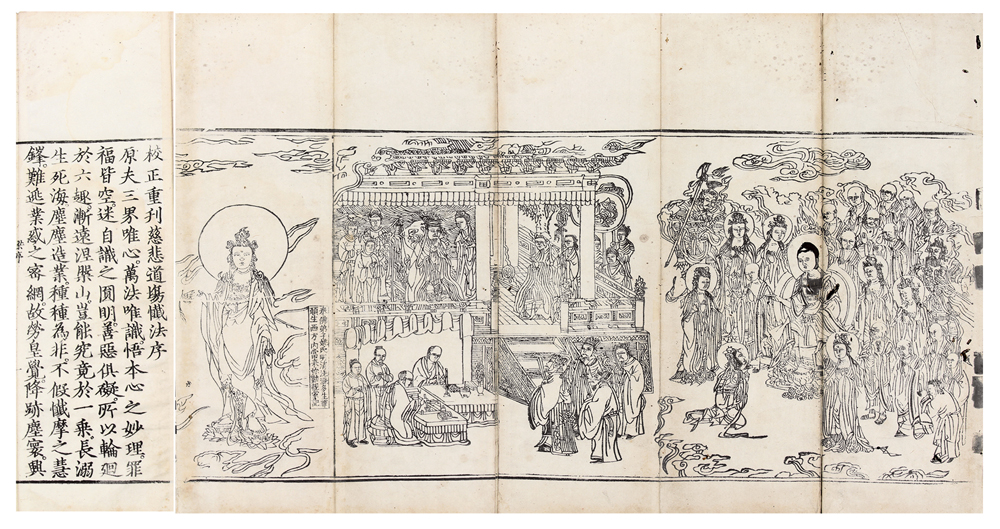 校正重刊慈悲道場懺法序
原夫三界唯心。萬法唯識。悟本心之妙理。罪
福皆空。迷自識之圓明。善惡俱礙。所以輪廻
於六趣。漸遠涅槃山。豈能究竟於一乘。長溺
生死海。塵塵造業。種種為非。不假懺摩之慧
鋒。難逃業惑之密網。故勞皇覺。降跡塵寰。興